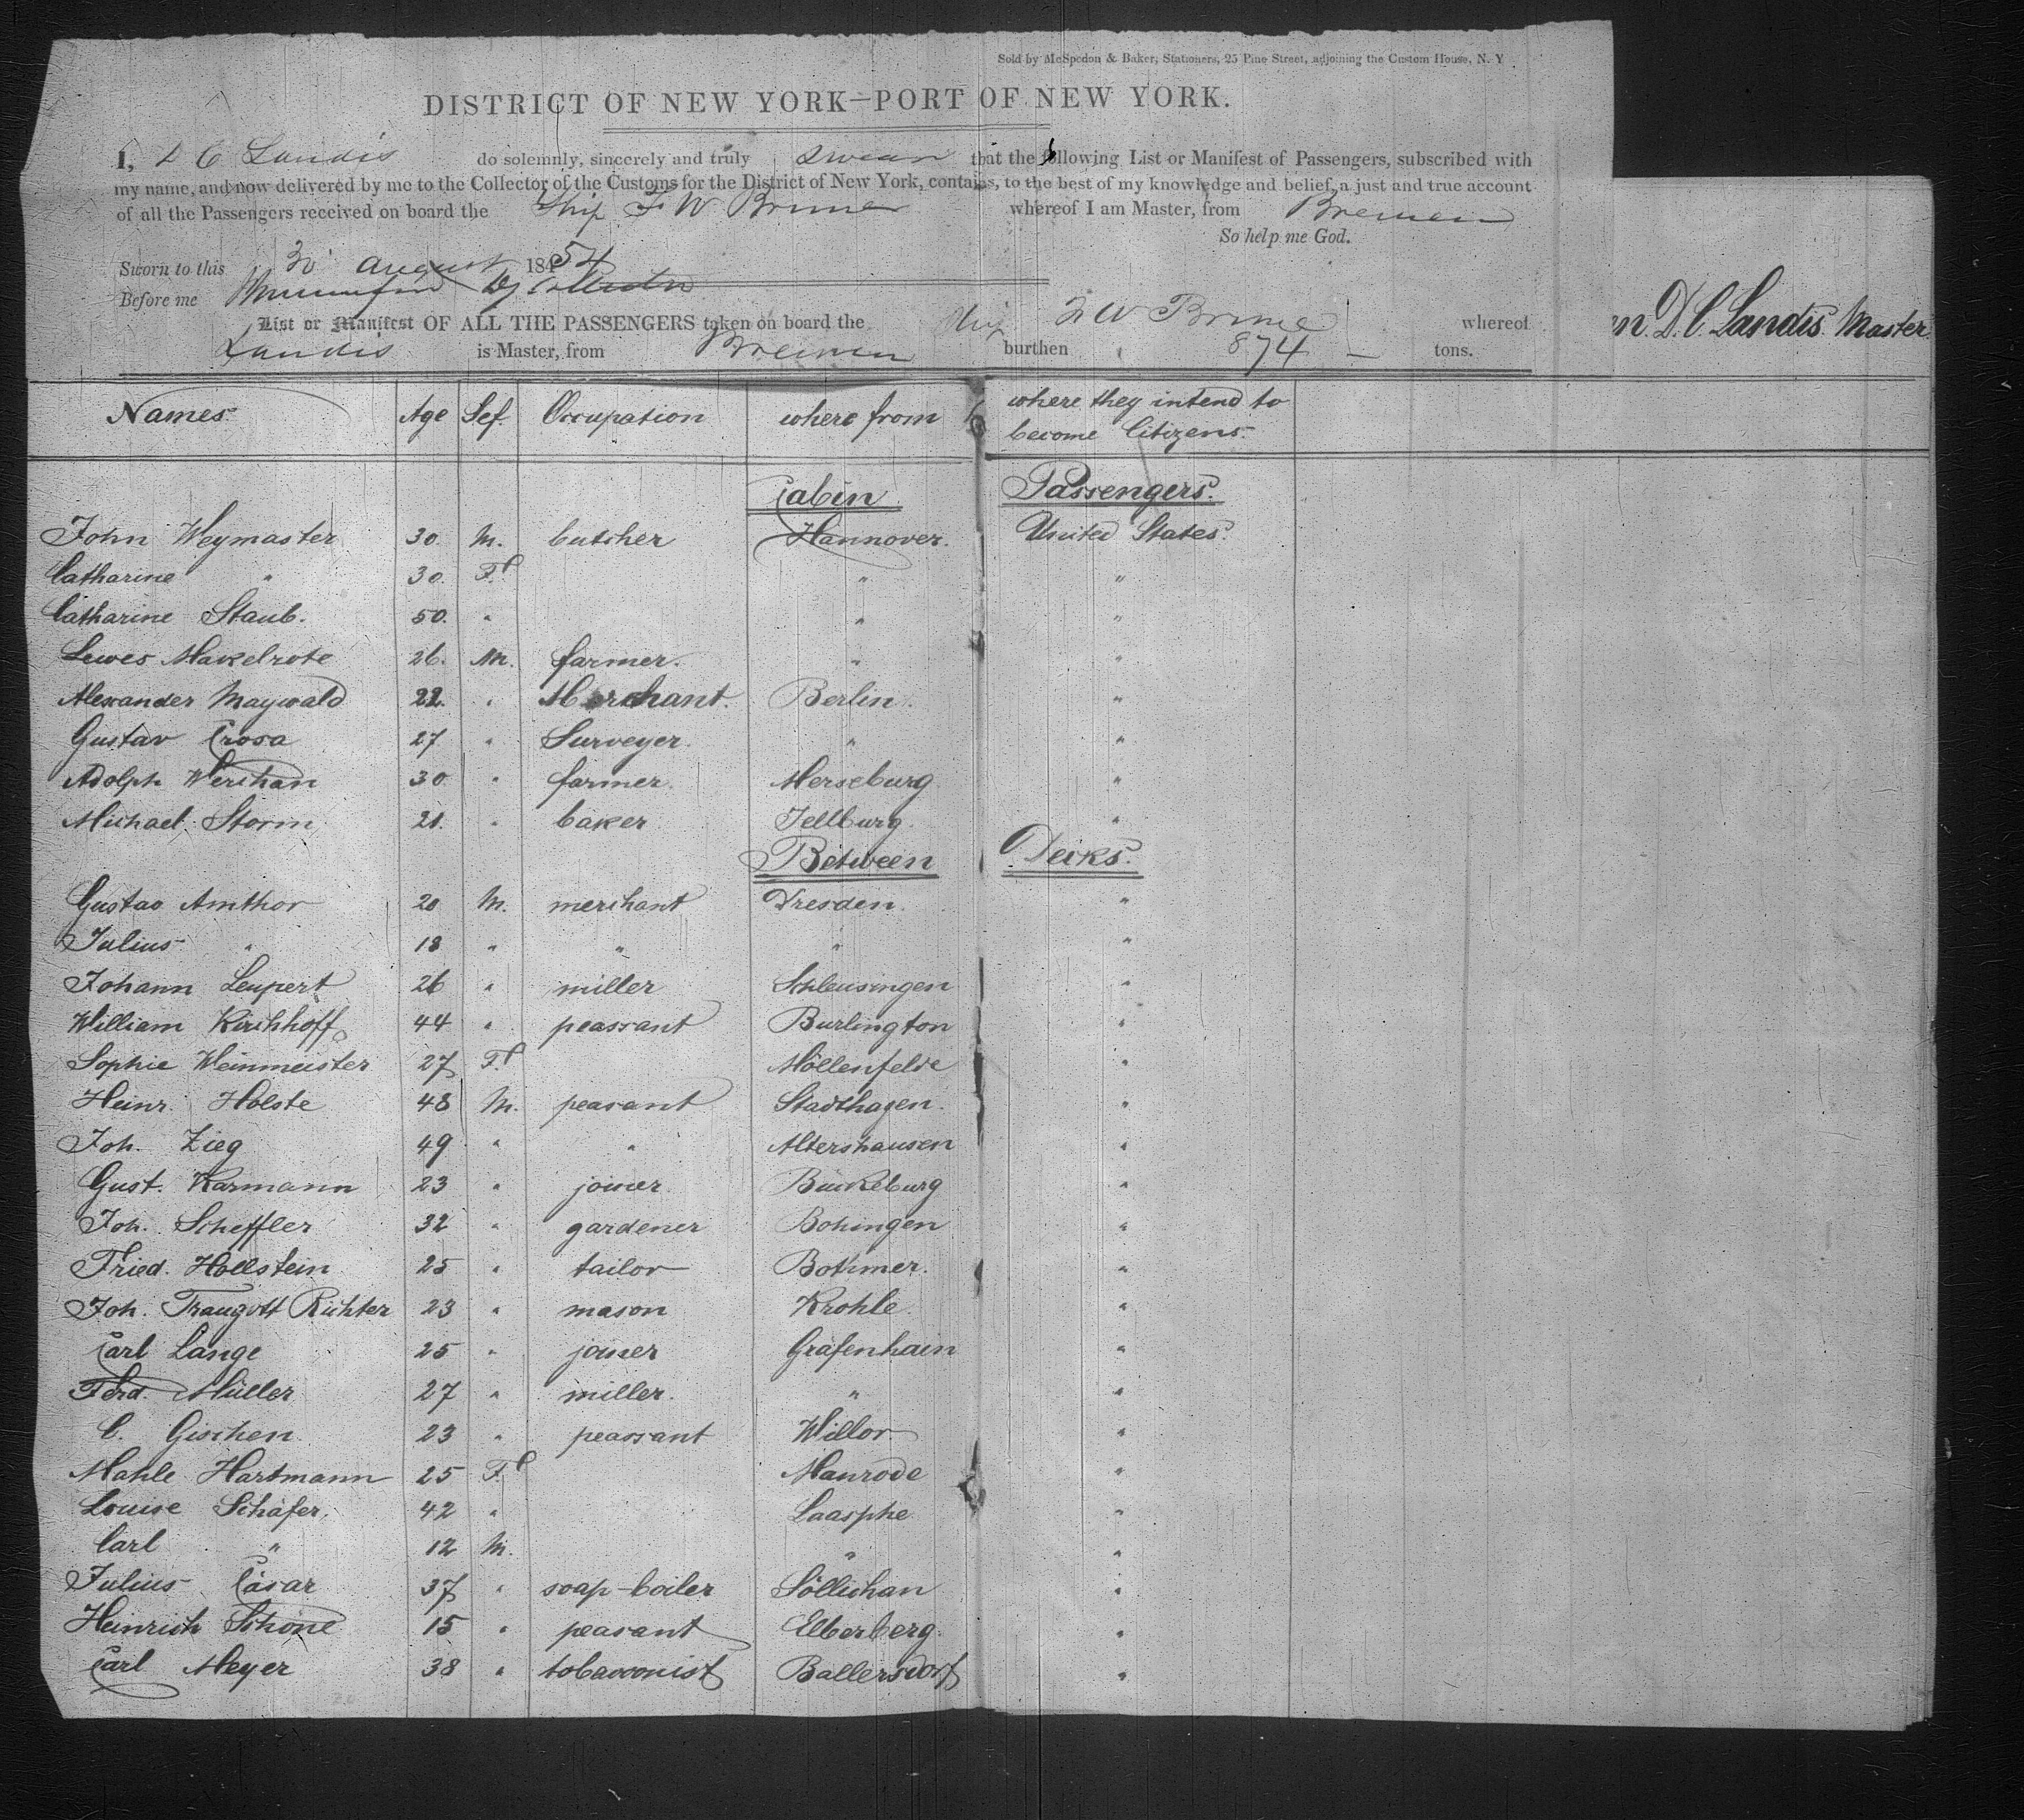 Sold by McSpedon & Baker, Stationers, 25 Pine Street, adjoining the Custom House, N. Y
DISTRICT OF NEW YORK—PORT OF NEW YORK.
I, D C Landis do solemnly, sincerely and truly swear that the following List or Manifest of Passengers, subscribed with
my name, and now delivered by me to the Collector of the Customs for the District of New York, contains, to the best of my knowledge and belief, a just and true account
of all the Passengers received on board the Ship F W Brune whereof I am Master, from Bremen
So help me God.
Sworn to this 30 August 1854
Before me
List or Manifest OF ALL THE PASSENGERS taken on board the Ship F W Brune whereof
Landis is Master, from Bremen burthen 874 tons.
n. D. C. Landis. Master.
Names Age Sex. Occupation where from where they intend to
become Citizens.
Cabin Passengers.
John Weymaster 30. M. butcher Hannover. United States.
Catharine " 30. F. " "
Catharine Staub. 50. " " "
Lewes Makelrote 26. M. farmer. " "
Alexander Maywald 22. " Merchant. Berlin. "
Gustav Crosa 27 " Surveyer. " "
Adolph Werchan 30 " farmer. Merseburg "
Michael Storm 21. " baker Jellburg. "
Between Decks.
Gustav Amthor 20 M. merchant Dresden. "
Julius " 18 " " " "
Johann Leupert 26 " miller Schleusingen "
William Kirchhoff 44 " peassant Burlington "
Sophie Weinmeister 27 F. Möllenfelde "
Heinr. Holste 48 M. peasant Stadthagen. "
Joh. Zieg 49 " " Altershausen "
Gust. Karmann 23 " joiner Bückeburg "
Joh. Scheffler 32 " gardener Bohingen "
Fried. Hollstein 25 " tailor Bothmer. "
Joh. Traugott Richter 23 " mason Krohle. "
Carl Lange 25 " joiner Gräfenhain "
Ferd. Müller 27 " miller. " "
C. Gischen 23 " peassant Willor "
Mahle Hartmann 25 F. Manrode "
Louise Schäfer. 42 " Laasphe "
Carl " 12 M. " "
Julius Cäsar 37 " soap-boiler Söllichan "
Heinrich Schöne 15 " peasant Elberberg. "
Carl Meyer 38 " tobacconist Ballersdorf "